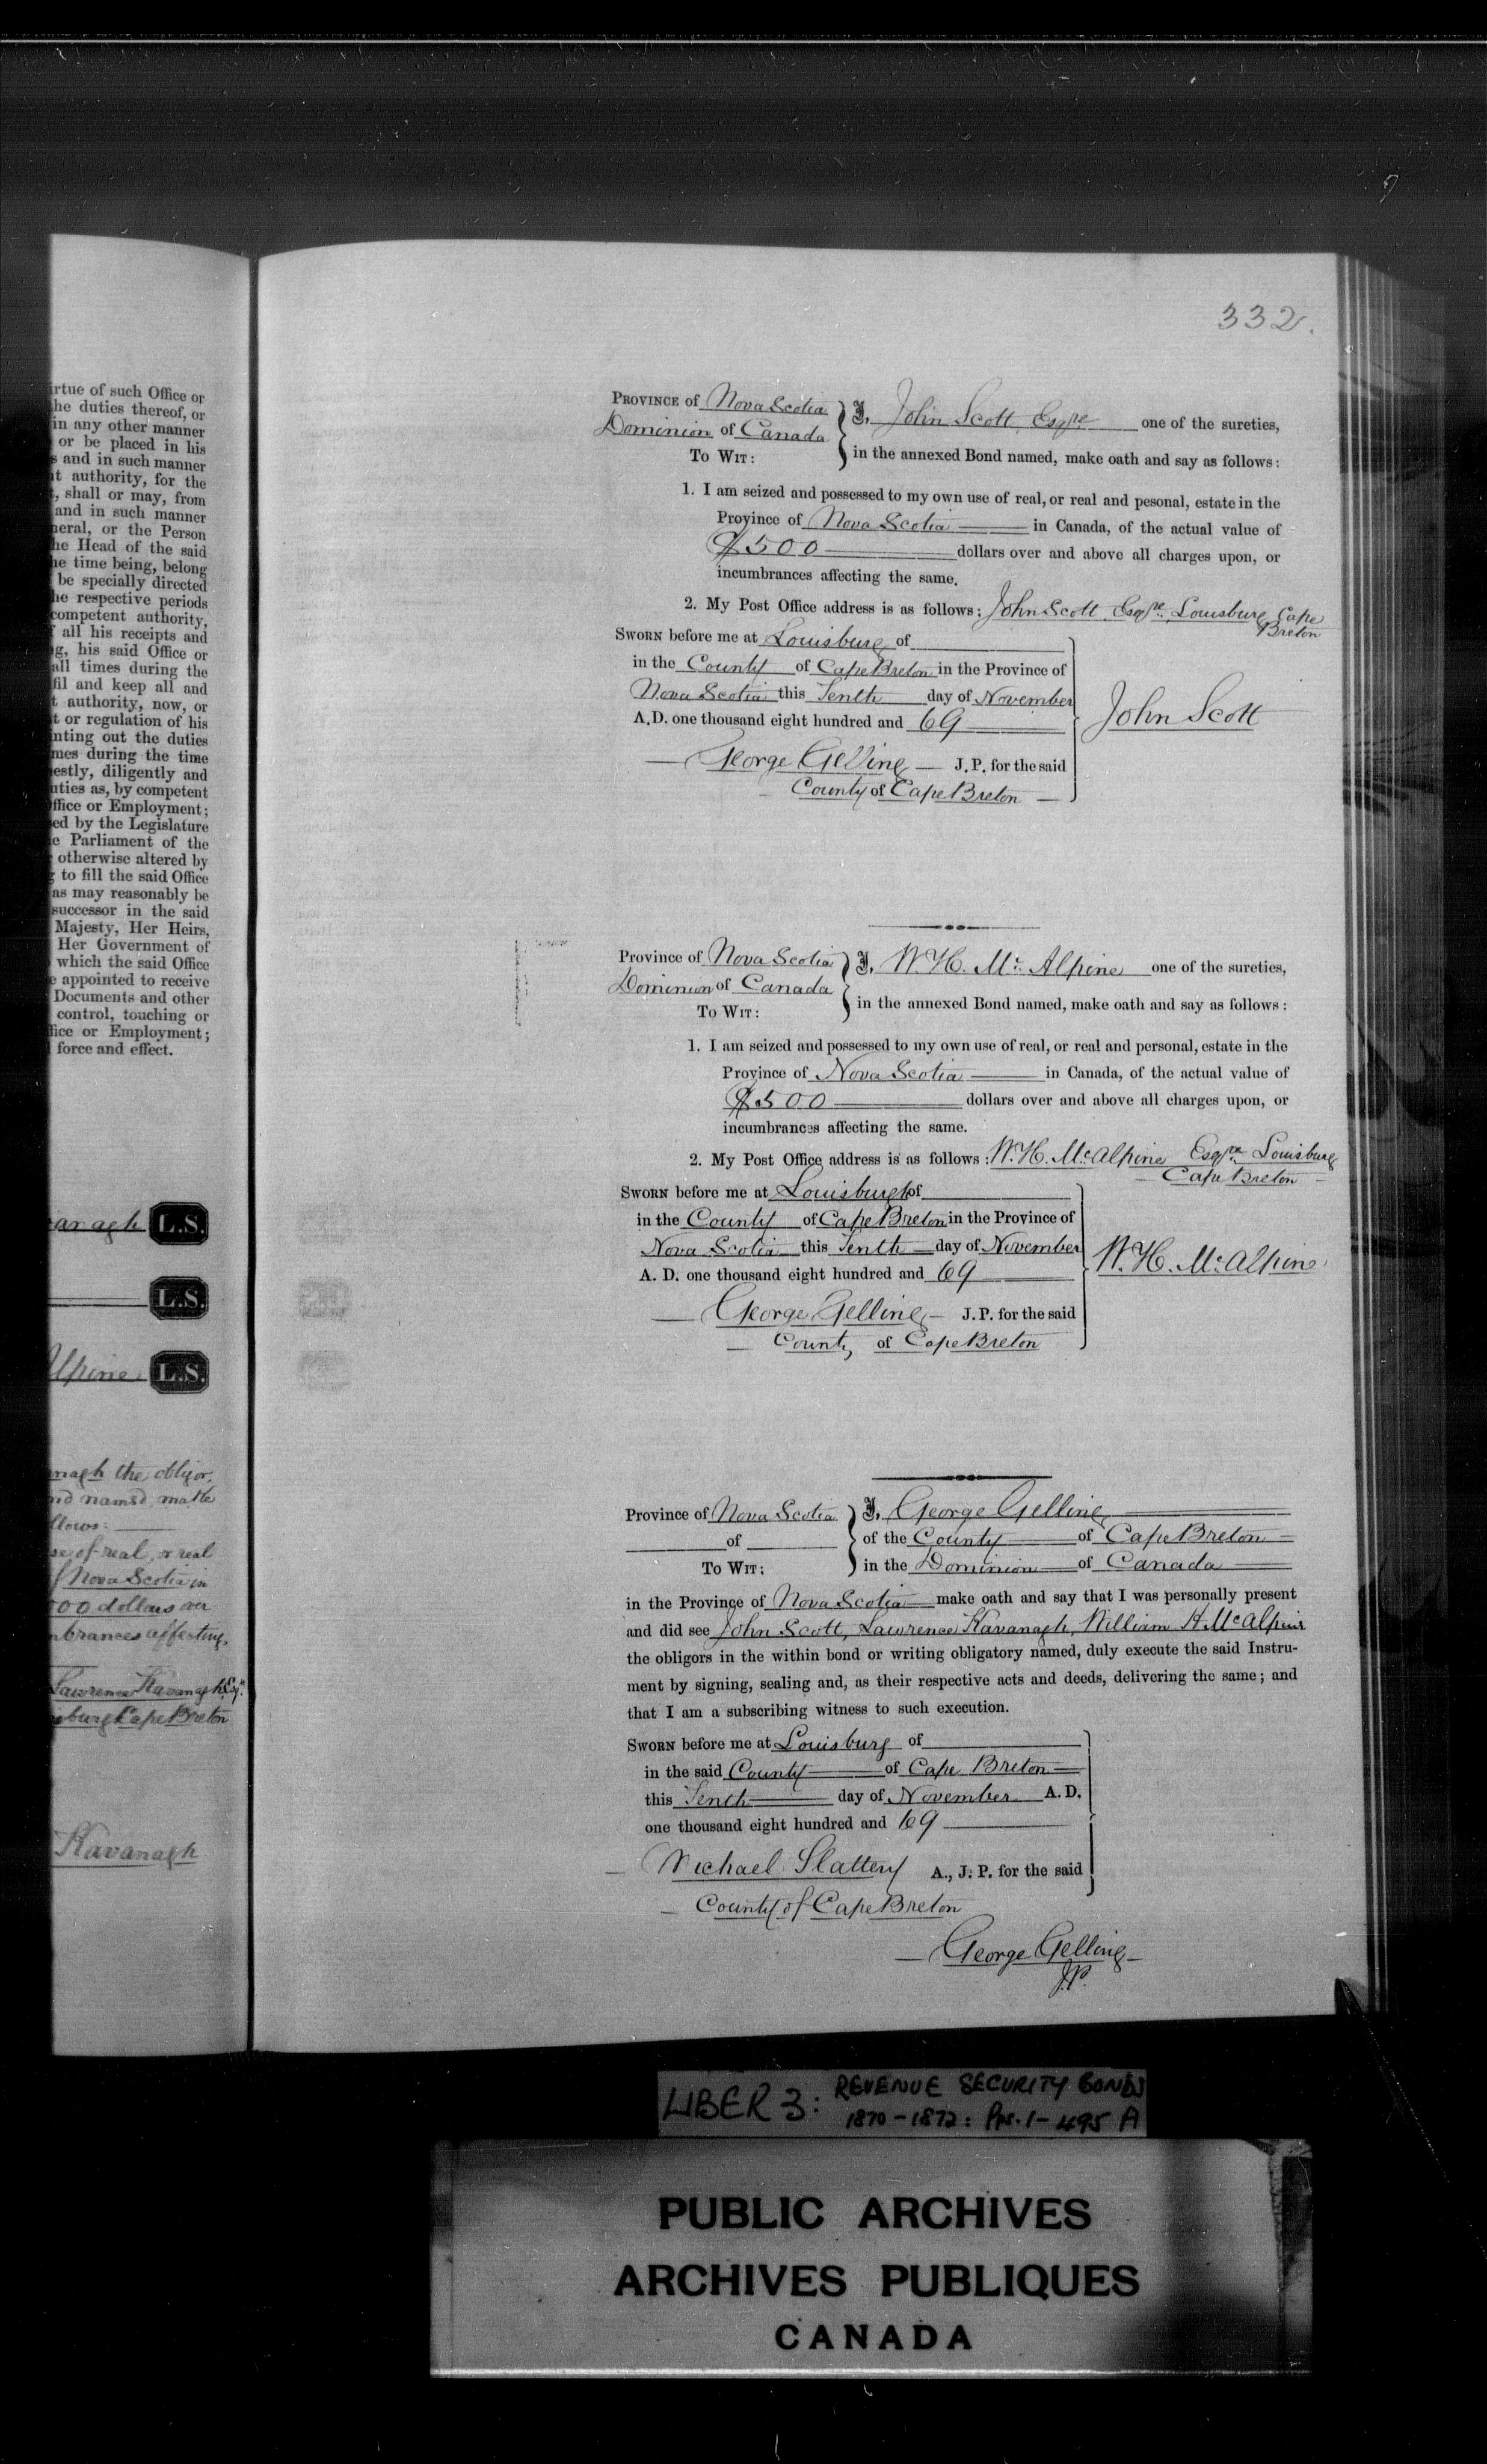 irtue of such Office or
he duties thereof, or
in any other manner
or be placed in his
s and in such manner
t authority, for the
, shall or may, from
and in such manner
neral, or the Person
he Head of the said
he time being, belong
be specially directed
he respective periods
competent authority,
all his receipts and
g, his said Office or
all times during the
fil and keep all and
t authority, now, or
t or regulation of his
nting out the duties
mes during the time
estly, diligently and
uties as, by competent
ffice or Employment;
ed by the Legislature
e Parliament of the
otherwise altered by
g to fill the said Office
as may reasonably be
successor in the said
Majesty, Her Heirs,
Her Government of
which the said Office
e appointed to receive
Documents and other
control, touching or
fice or Employment;
force and effect.
anagh L.S.
L.S.
Alpine L.S.
nagh the obligor,
nd named make
llows:
se of real, or real
f Nova Scotia in
00 dollars over
mbrances affecting
Lawrence Kavanagh Esqr.
sburg Cape Breton
Kavanagh
332.
PROVINCE of Nova Scotia } I, John Scott Esqre one of the sureties,
Dominion of Canada
TO WIT: in the annexed Bond named, make oath and say as follows:
1. I am seized and possessed to my own use of real, or real and pesonal, estate in the
Province of Nova Scotia in Canada, of the actual value of
$500 dollars over and above all charges upon, or
incumbrances affecting the same.
2. My Post Office address is as follows: John Scott Esqre. Louisburg Cape
Breton
SWORN before me at Louisburg of
in the County of Cape Breton in the Province of
Nova Scotia this Tenth day of November
A.D. one thousand eight hundred and 69 John Scott
George Gelling J.P. for the said
County of Cape Breton
Province of Nova Scotia } I, W. H. Mc. Alpine one of the sureties,
Dominion of Canada
TO WIT: in the annexed Bond named, make oath and say as follows:
1. I am seized and possessed to my own use of real, or real and personal, estate in the
Province of Nova Scotia in Canada, of the actual value of
$500 dollars over and above all charges upon, or
incumbrances affecting the same.
2. My Post Office address is as follows: W. H. McAlpine Esqre Louisburg
Cape Breton
SWORN before me at Louisburg of
in the County of Cape Breton in the Province of
Nova Scotia this Tenth day of November
A. D. one thousand eight hundred and 69 W. H. McAlpine
George Gelling J.P. for the said
County of Cape Breton
Province of Nova Scotia } I, George Gelling
of } of the County of Cape Breton
TO WIT: } in the Dominion of Canada
in the Province of Nova Scotia make oath and say that I was personally present
and did see John Scott, Lawrence Kavanagh, William H. McAlpine
the obligors in the within bond or writing obligatory named, duly execute the said Instru-
ment by signing, sealing and, as their respective acts and deeds, delivering the same; and
that I am a subscribing witness to such execution.
SWORN before me at Louisburg of
in the said County of Cape Breton
this Tenth day of November A.D.
one thousand eight hundred and 69
Michael Slattery A., J. P. for the said
County of Cape Breton
George Gelling
J.P.
LIBER 3: REVENUE SECURITY BONDS
1870-1872: PPS. 1-495 A
PUBLIC ARCHIVES
ARCHIVES PUBLIQUES
CANADA